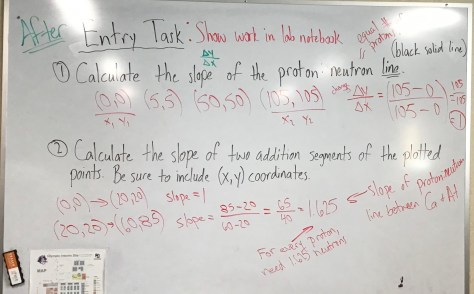 After Entry Task: Show work in lab notebook
Δy
Δx
equal #
protons
(black solid line)
① Calculate the slope of the proton-neutron line.
(0,0) (5,5) (50,50) (105,105) Δy/Δx = (105-0)/(105-0) 105/105
x₁ y₁ x₂ y₂ = 1
② Calculate the slope of two addition segments of the plotted
points. Be sure to include (x,y) coordinates.
(0,0) → (20,20) slope = 1
(20,20) → (60,85) slope = 85-20/60-20 = 65/40 = 1.625
slope of proton:neutron
line between Ca + At
For every proton,
need 1.625 neutrons